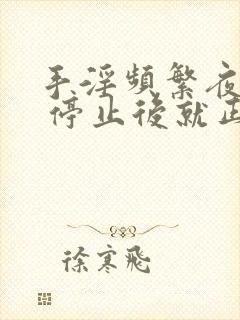 手淫頻繁夜
停止後就正
徐寒飛